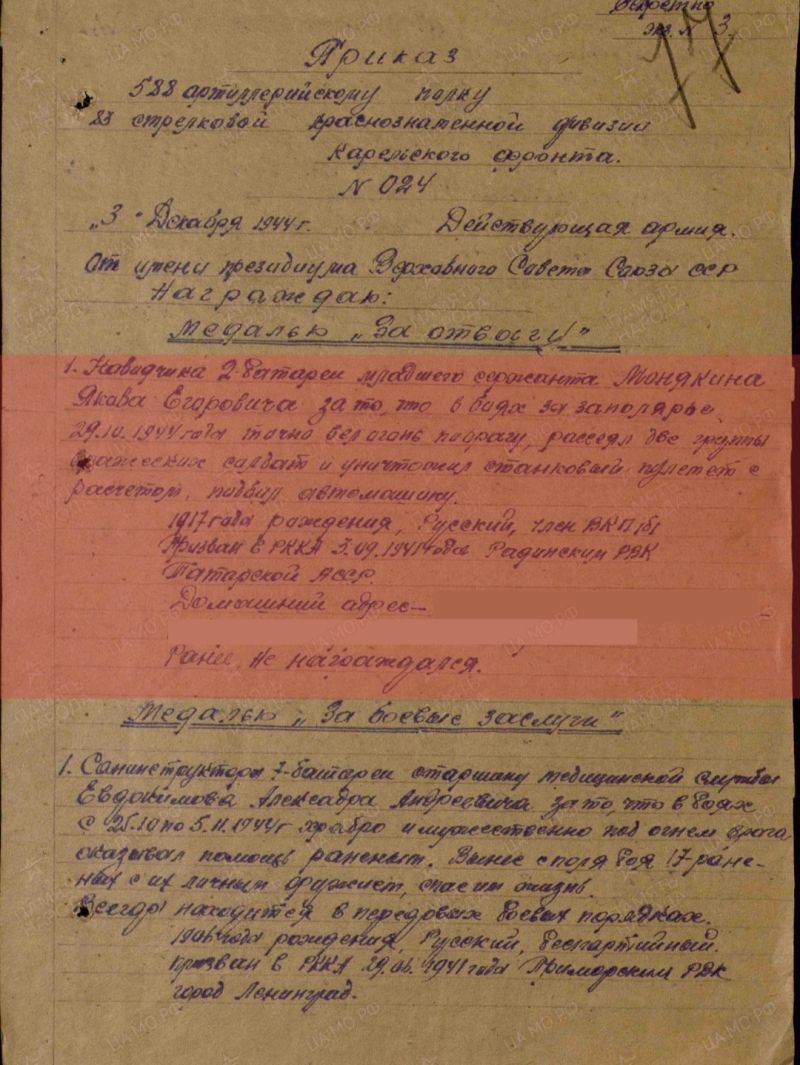 Секретно
экз. N 3.
77
Приказ
588 артиллерийскому полку
83 стрелковой краснознаменной дивизии
Карельского фронта.
N 024
"3" Декабря 1944 г. Действующая армия.
От имени президиума Верховного Совета Союза сср
Награждаю:
Медалью "За отвагу"
1. Наводчика 2 батареи младшего сержанта Мондякина
Якова Егоровича за то, что в боях за заполярье
29.10.1944 года точно вел огонь по врагу, рассеял две группы
вражеских солдат и уничтожил станковый пулемет с
расчетом, подбил автомашину.
1917 года рождения, Русский, член ВКП(б)
Призван в РККА 3.09.1941 года РВК
Татарской АССР.
Домашний адрес-
Ранее не награждался.
Медалью "За боевые заслуги"
1. Санинструктора 7-батареи старшину медицинской службы
Евдокимова Александра Андреевича за то, что в боях
с 25.10 по 5.11.1944 г храбро и мужественно под огнем врага
оказывал помощь раненым. Вынес с поля боя 17 ране-
ных с их личным оружием, спас им жизнь.
Всегда находится в передовых боевых порядках.
1906 года рождения, Русский, беспартийный.
призван в РККА 29.06.1941 года Приморским РВК
город Ленинград.